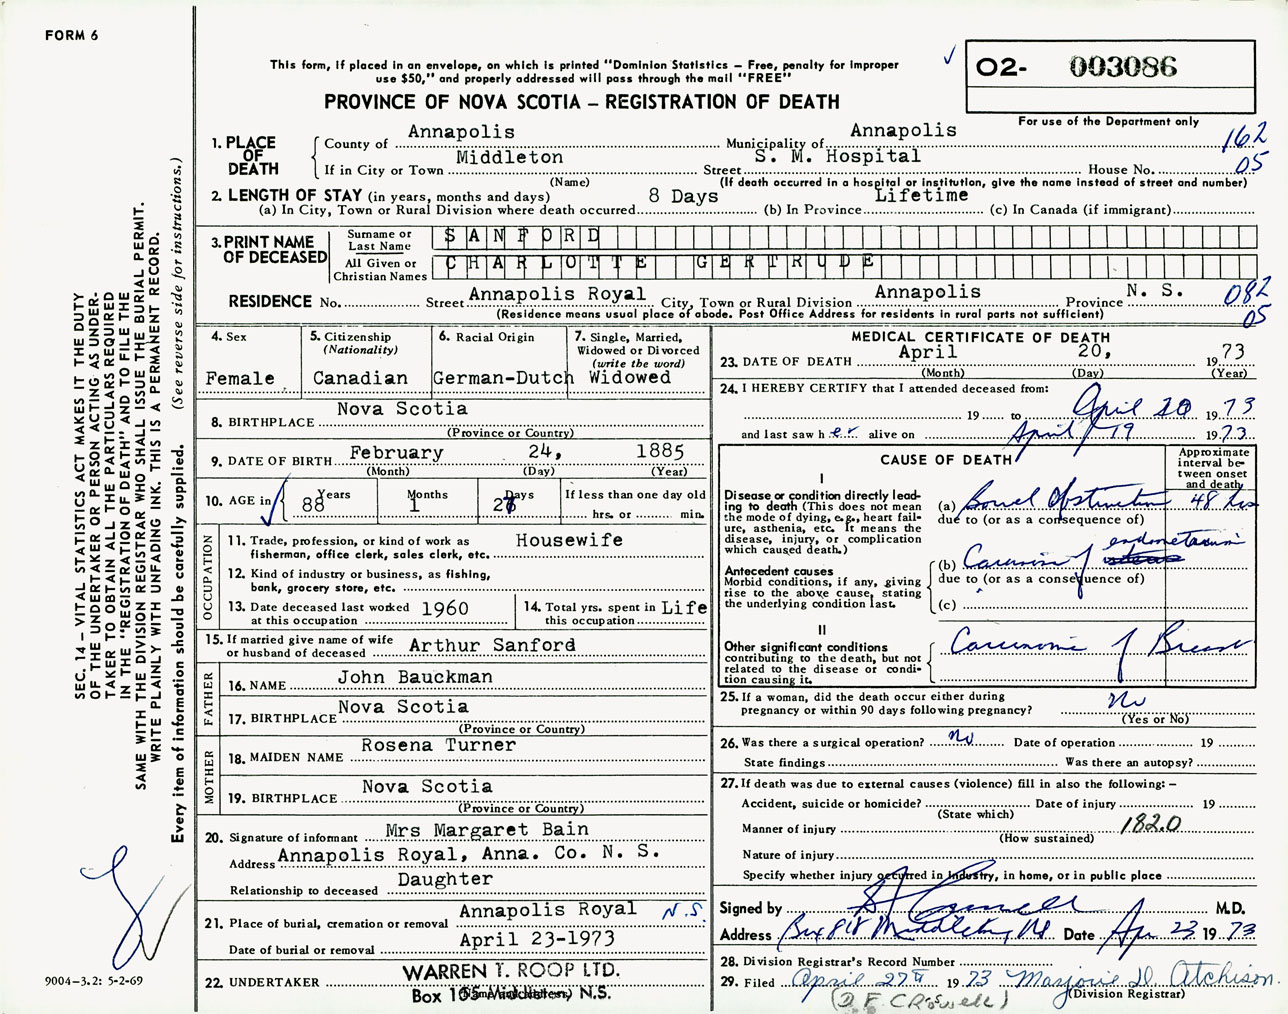 FORM 6
This form, if placed in an envelope, on which is printed "Dominion Statistics – Free, penalty for improper
use $50," and properly addressed will pass through the mail "FREE"
PROVINCE OF NOVA SCOTIA – REGISTRATION OF DEATH
O2- 003086
For use of the Department only
1. PLACE OF DEATH
County of Annapolis Municipality of Annapolis 162
If in City or Town Middleton Street S. M. Hospital House No. 05
(Name) (If death occurred in a hospital or institution, give the name instead of street and number)
2. LENGTH OF STAY (in years, months and days)
(a) In City, Town or Rural Division where death occurred 8 Days (b) In Province Lifetime (c) In Canada (if immigrant)
3. PRINT NAME OF DECEASED
Surname or Last Name SANFORD
All Given or Christian Names CHARLOTTE GERTRUDE
RESIDENCE No. Street Annapolis Royal City, Town or Rural Division Annapolis Province N. S. 082
(Residence means usual place of abode. Post Office Address for residents in rural parts not sufficient) 05
4. Sex
Female
5. Citizenship
(Nationality)
Canadian
6. Racial Origin
German-Dutch
7. Single, Married,
Widowed or Divorced
(write the word)
Widowed
8. BIRTHPLACE Nova Scotia
(Province or Country)
9. DATE OF BIRTH February 24, 1885
(Month) (Day) (Year)
10. AGE in Years Months Days If less than one day old
88 1 27 hrs. or min.
OCCUPATION
11. Trade, profession, or kind of work as Housewife
fisherman, office clerk, sales clerk, etc.
12. Kind of industry or business, as fishing,
bank, grocery store, etc.
13. Date deceased last worked 1960
at this occupation
14. Total yrs. spent in Life
this occupation
15. If married give name of wife Arthur Sanford
or husband of deceased
FATHER
16. NAME John Bauckman
17. BIRTHPLACE Nova Scotia
(Province or Country)
MOTHER
18. MAIDEN NAME Rosena Turner
19. BIRTHPLACE Nova Scotia
(Province or Country)
20. Signature of informant Mrs Margaret Bain
Address Annapolis Royal, Anna. Co. N. S.
Relationship to deceased Daughter
21. Place of burial, cremation or removal Annapolis Royal N.S.
Date of burial or removal April 23-1973
22. UNDERTAKER WARREN T. ROOP LTD.
Box 105 Middleton, N.S.
MEDICAL CERTIFICATE OF DEATH
23. DATE OF DEATH April 20, 19 73
(Month) (Day) (Year)
24. I HEREBY CERTIFY that I attended deceased from:
19 to April 20 1973
and last saw her alive on April 19 1973
CAUSE OF DEATH
Approximate interval between onset and death
I
Disease or condition directly leading to death (This does not mean the mode of dying, e.g., heart failure, asthenia, etc. It means the disease, injury, or complication which caused death.)
(a) Bowel Obstruction 48 hrs
due to (or as a consequence of)
Antecedent causes
Morbid conditions, if any, giving rise to the above cause, stating the underlying condition last.
(b) Carcinoma of endometrium
due to (or as a consequence of)
(c)
II
Other significant conditions
contributing to the death, but not related to the disease or condition causing it.
Carcinoma of Breast
25. If a woman, did the death occur either during
pregnancy or within 90 days following pregnancy? No
(Yes or No)
26. Was there a surgical operation? No Date of operation 19
State findings Was there an autopsy?
27. If death was due to external causes (violence) fill in also the following: –
Accident, suicide or homicide? Date of injury 19
(State which)
Manner of injury 182.0
(How sustained)
Nature of injury
Specify whether injury occurred in Industry, in home, or in public place
Signed by M.D.
Address Box 818 Middleton, NS Date Apr 23 1973
28. Division Registrar's Record Number
29. Filed April 27th 1973 Marjorie D. Atchison.
(Division Registrar)
(D. F. CRowell)
SEC. 14 – VITAL STATISTICS ACT MAKES IT THE DUTY
OF THE UNDERTAKER OR PERSON ACTING AS UNDER-
TAKER TO OBTAIN ALL THE PARTICULARS REQUIRED
IN THE "REGISTRATION OF DEATH" AND TO FILE THE
SAME WITH THE DIVISION REGISTRAR WHO SHALL ISSUE THE BURIAL PERMIT.
WRITE PLAINLY WITH UNFADING INK. THIS IS A PERMANENT RECORD.
Every item of information should be carefully supplied. (See reverse side for instructions.)
9004-3.2: 5-2-69